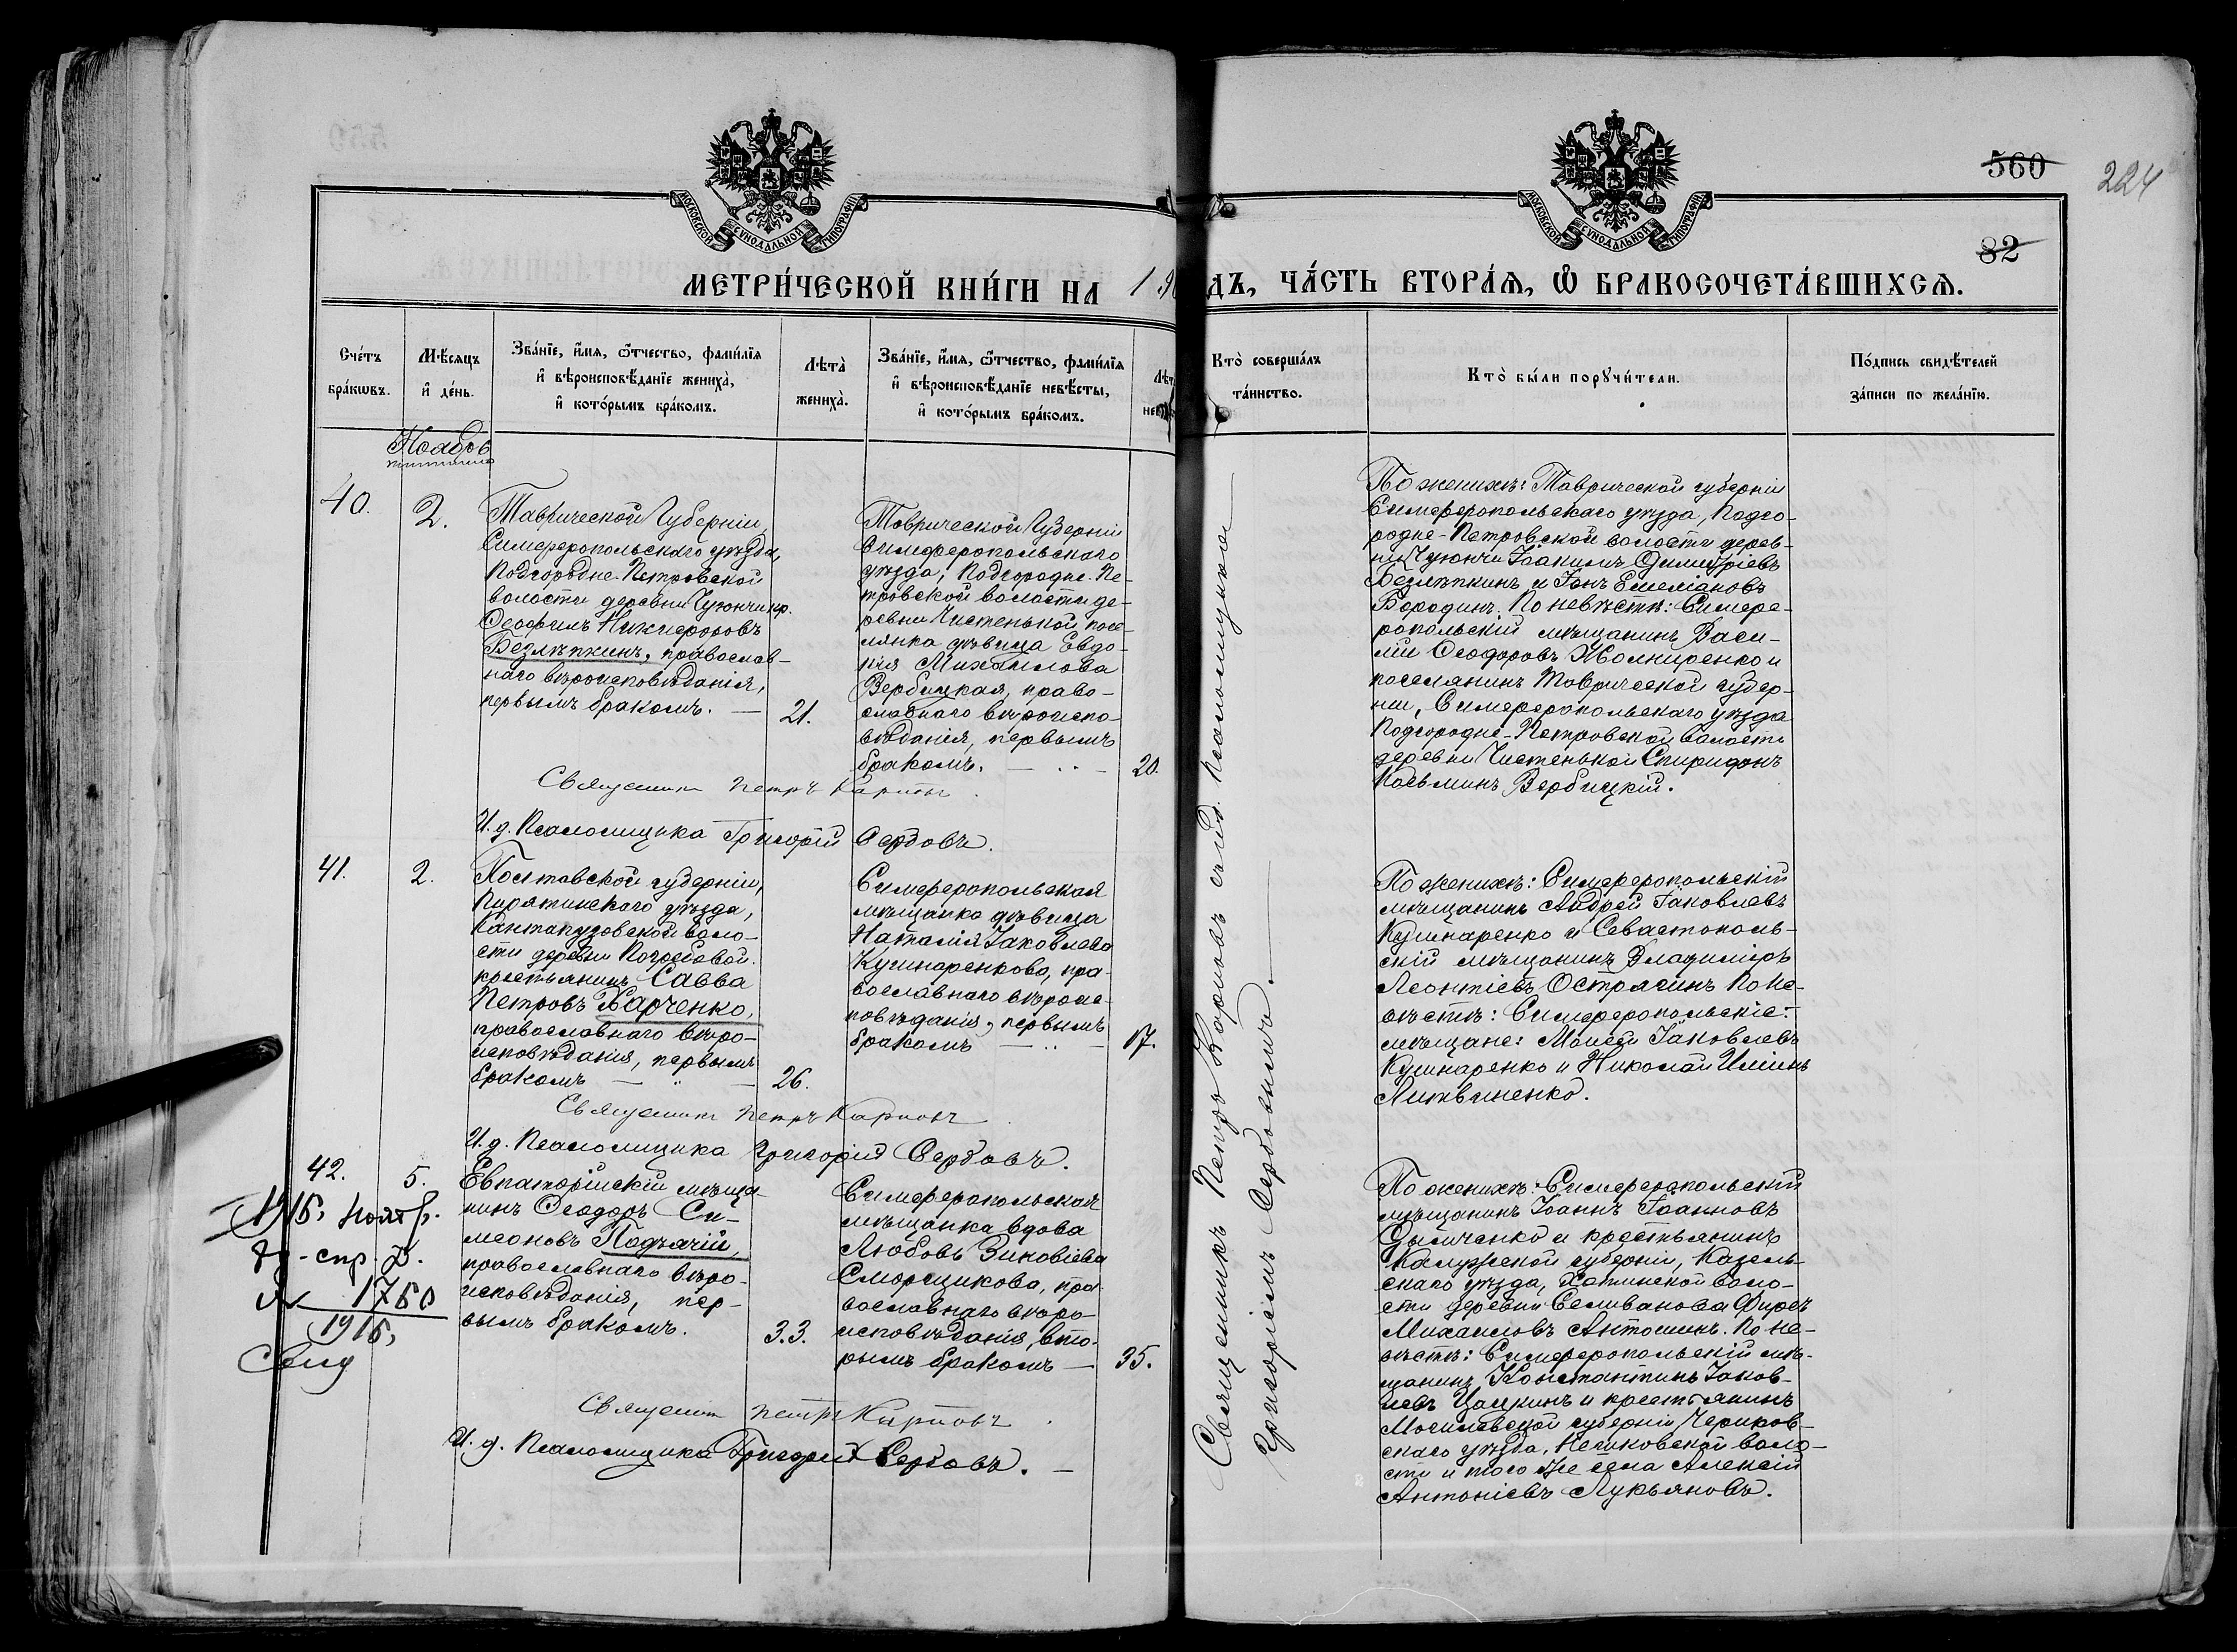 560
224
82
МОСКОВСКОЙ СУНОДАЛЬНОЙ ТИПОГРАФІИ
МОСКОВСКОЙ СУНОДАЛЬНОЙ ТИПОГРАФІИ
МЕТРИ́ЧЕСКОЙ КНИ́ГИ НА 19
ДЪ, ЧА́СТЬ ВТОРА́Я, Ѽ БРАКОСОЧЕТА́ВШИХСЯ.
Сче́тъ бра́кѡвъ.
Мѣ́сяцъ и҆ де́нь.
Зва́нїе, и҆́мя, ѻ҆́тчество, фами́лїя и҆ вѣроисповѣ́данїе жениха̀, и҆ кото́рымъ бра́комъ.
Лѣта̀ жениха̀.
Зва́нїе, и҆́мя, ѻ҆́тчество, фами́лїя и҆ вѣроисповѣ́данїе невѣ́сты, и҆ кото́рымъ бра́комъ.
Кто̀ соверша́лъ та́инство.
Кто̀ бы́ли порꙋчи́тели.
По́дпись свидѣ́телей за́писи по жела́нїю.
Ноябрь
40.
2.
Таврической Губерніи,
Симферопольскаго уѣзда,
Подгородне-Петровской
волости деревни Чуюнчи кр.
Ѳеофилъ Никифоровъ
Безлѣпкинъ, православ-
наго вѣроисповѣданія,
первымъ бракомъ. —
21.
Таврической Губерніи
Симферопольскаго
уѣзда, Подгородне-Пе-
тровской волости де-
ревни Чистенькой посе-
лянка дѣвица Евдо-
кія Михайлова
Вербицкая, право-
славнаго вѣроиспо-
вѣданія, первымъ
бракомъ. —
20.
Священникъ Петръ Карповъ.
И. д. Псаломщика Григорій Сербовъ.
По женихѣ: Таврической губерніи
Симферопольскаго уѣзда, Подго-
родне-Петровской волости дерев-
ни Чуюнчи Іоакимъ Димитріевъ
Безлѣпкинъ и Іанъ Емеліановъ
Бородинъ. По невѣстѣ: Симфе-
ропольскій мѣщанинъ Васи-
лій Ѳеодоровъ
поселянинъ Таврической губер-
ніи, Симферопольскаго уѣзда
Подгородне-Петровской волости
деревни Чистенькой Спиридонъ
Косьминъ Вербицкій.
41.
2.
Полтавской губерніи,
Пирятинскаго уѣзда,
Кантакузовской воло-
сти деревни Погребовой
крестьянинъ Савва
Петровъ Харченко,
православнаго вѣро-
исповѣданія, первымъ
бракомъ —
26.
Симферопольская
мѣщанка дѣвица
Наталія Іаковлева
Кушнаренкова, пра-
вославнаго вѣроис-
повѣданія, первымъ
бракомъ —
17.
Священникъ Петръ Карповъ
И. д. Псаломщика Григорій Сербовъ.
По женихѣ: Симферопольскій
мѣщанинъ Андрей Іаковлевъ
Кушнаренко и Севастополь-
скій мѣщанинъ Владиміръ
Леонтіевъ Острягинъ По не-
вѣстѣ: Симферопольскіе
мѣщане: Моисей Іаковлевъ
Кушнаренко и Николай Иліинъ
Литвиненко.
42.
5.
1915, Ноябр.
спр. Д.
№ 1760
1915,
Евпаторійскій мѣща-
нинъ Ѳеодоръ Си-
меоновъ Подгачій,
православнаго вѣро-
исповѣданія, пер-
вымъ бракомъ.
33.
Симферопольская
мѣщанка вдова
Любовь Зиновіева
Сморщикова, пра-
вославнаго вѣро-
исповѣданія, вто-
рымъ бракомъ —
35.
Священникъ Петръ Карповъ
И. д. Псаломщика Григорій Сербовъ. —
По женихѣ: Симферопольскій
мѣщанинъ Іоаннъ Іоанновъ
и крестьянинъ
Калужской губерніи, Козель-
скаго уѣзда, воло-
сти деревни Селиванова Фирсъ
Михаиловъ Антошинъ. По не-
вѣстѣ: Симферопольскій мѣ-
щанинъ Константинъ Іаков-
левъ и крестьянинъ
Могилевской губерніи, Чериков-
скаго уѣзда, воло-
сти и того же села Алексій
Антоніевъ Лукьяновъ.
Священникъ Петръ Карповъ съ и.д. псаломщика
Григоріемъ Сербовымъ.